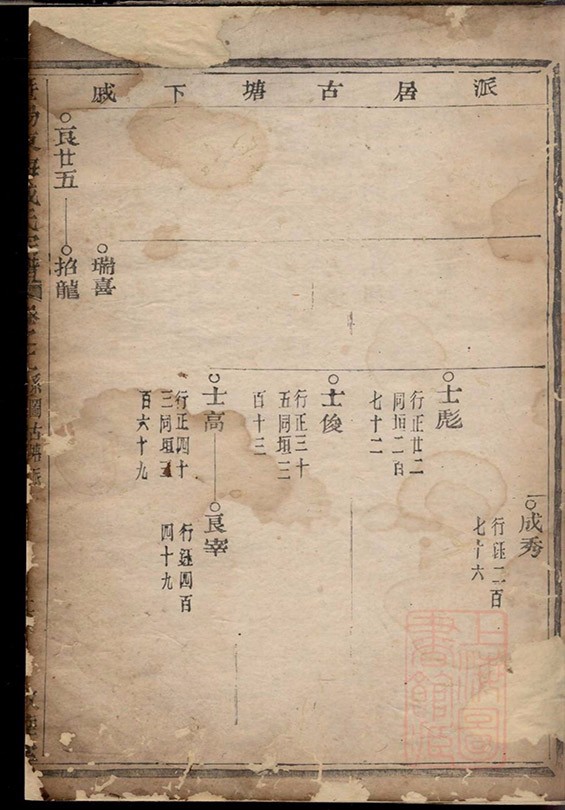 派居古塘下戚
成秀
行𨧱二百
七十六
士彪
行正廿二
同垣二百
七十二
士俊
行正三十
五同垣三
百十三
士高
行正四十
三同垣五
百六十九
良宰
四百
四十九
瑞喜
良廿五
招龍
古塘派
上海圖書館